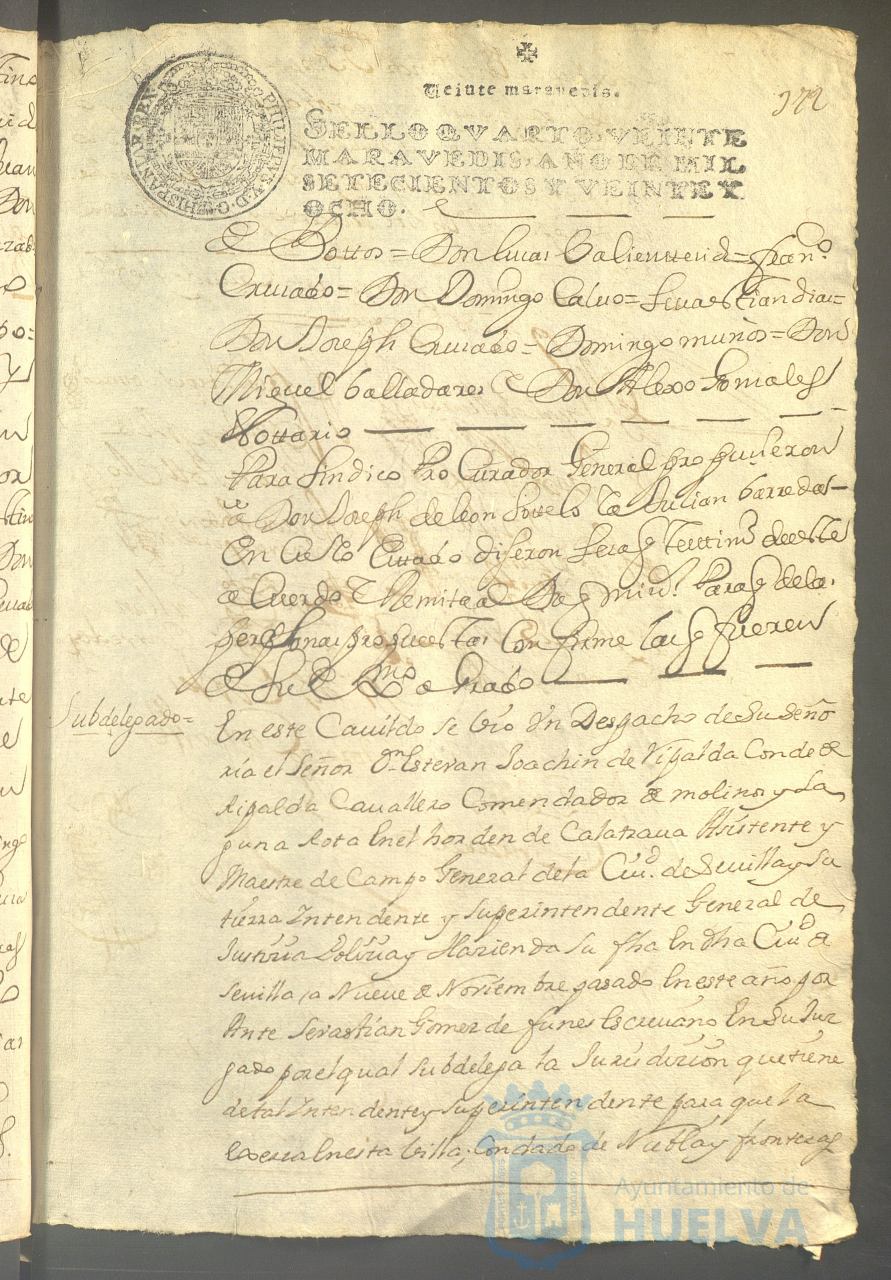 Veinte maravedis.
172
SELLO QVARTO, VEINTE
MARAVEDIS, AÑO DE MIL
SETECIENTOS Y VEINTE Y
OCHO.
PHILIPPVS V D G HISPANIAR REX
Vottos = Don Lucas = Franco
Cruzado = Don Domingo Calvo = Sevastian dias =
Don Joseph Cruzado = Domingo muños = Don
Miguel Valladares Don Alexo Gonsales
Nottario
Para Sindico Procurador General propusieron
a Don Joseph de leon Sottelo Julian Barredas
En Cuio disieron
acuerdo Remita al Para q de las
personas propuestas Confirme las q fueren
de su agrado
Subdelegado =
En este Cavildo se vio Un Despacho de Su Seño
ria el Señor Dn Estevan Joachin de Ripalda Conde de
Ripalda Cavallero Comendador de molinos y La
guna Rota En el horden de Calatrava Asistente y
Maestre de Campo General de la Ciud. de Sevilla y Su
tierra Intendente y Superintendente General de
Justiçia Poliçia y Hazienda Su fha En dha Ciud de
Sevilla, a Nueve de Noviembre pasado En este año por
Ante Sevastian Gomez de funes Escrivano En Su Juz
gado por el qual Subdelega la Jurisdizion que tiene
de tal Intendente y Superintendente para que la
Exersa En esta Villa, Condado de Niebla y fronteras
Ayuntamiento de
HUELVA